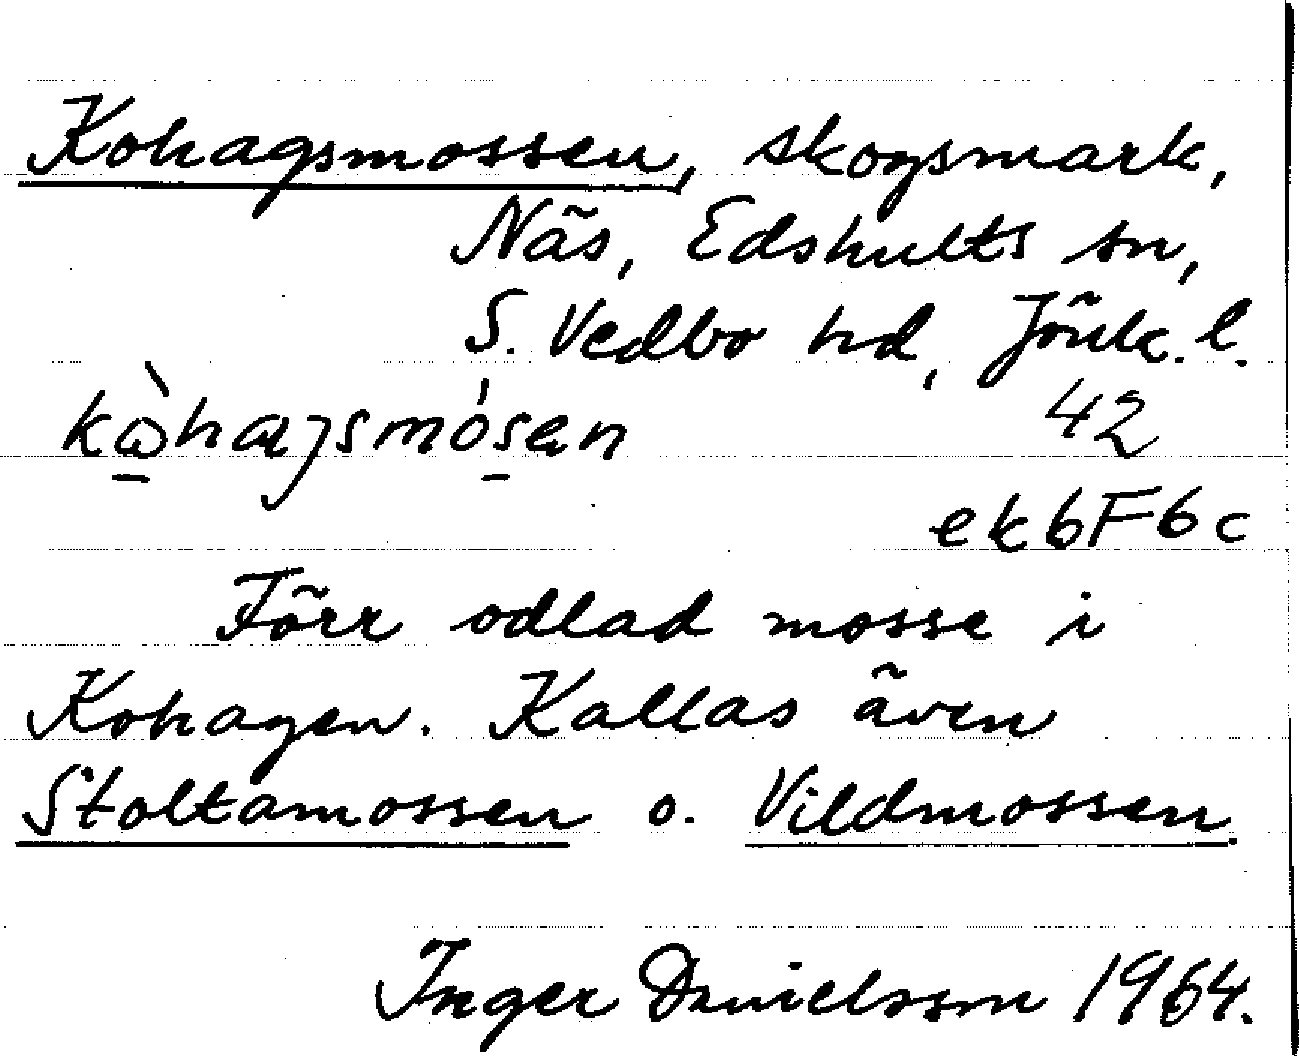 Kohagsmossen, skogsmark,
Näs, Edshults sn,
S. Vedbo hd, Jönk. l.
42
ek6F6c
Förr odlad mosse i
Kohagen. Kallas även
Stoltamossen o. Vildmossen.
Inger Danielsson 1964.